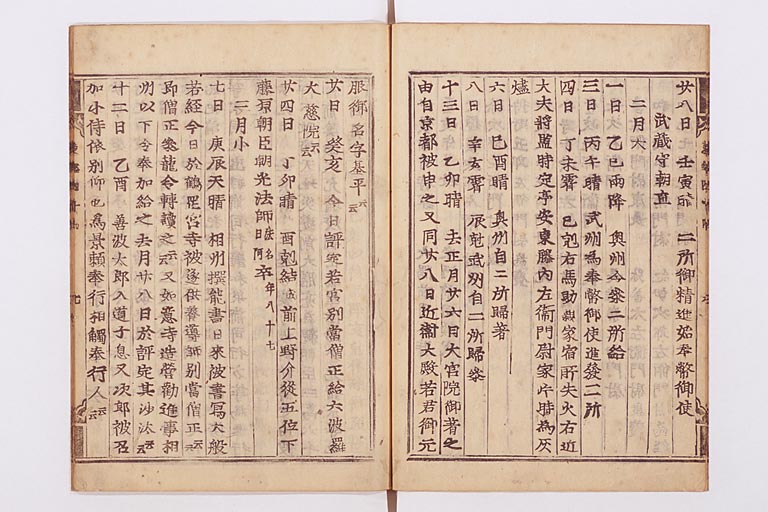 廿八日　壬寅霽　二所御精進始奉幣御使
武藏守朝直
二月大
一日　乙巳雨降　奥州令参二所給
三日　丙午晴武州爲奉幣御使進發二所
四日　丁未霽　巳剋右馬助親家宿所失火右近
大夫將監時定亭安東藤内左衛門尉家片時爲灰
燼
六日　己酉晴　奥州自二所歸著
八日　辛亥霽　辰剋武州自二所歸参
十三日　乙卯晴　去正月廿六日大宮院御著之
由自京都被申之又同廿八日近衞大殿若君御元
服御名字基平云云
廿日　癸亥　今日評定若宮別當僧正給六波羅
大慈院云云
廿四日　丁卯晴　酉剋結城前上野介從五位下
藤原朝臣朝光法師法名日阿卒年八十七
三月小
七日　庚辰天晴　相州撰能書日来被書寫大般
若經今日於鶴岡宮寺被遂供養導師別當僧正云云
即僧正龍令轉讀之云云又如意寺造營勸進事相
州以下令奉加給之去月廿八日於評定其沙汰云云
十二日　乙酉　善波太郎入道子息又次郎被召
加小侍依別仰也爲景頼奉行相觸奉行人云云